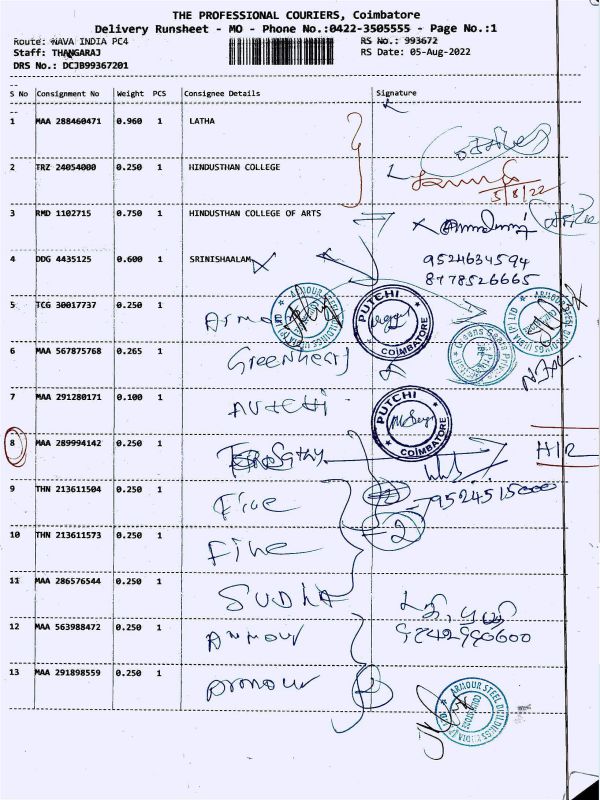 THE PROFESSIONAL COURIERS, Coimbatore
Delivery Runsheet - MO - Phone No.:0422-3505555 - Page No.:1
Route: NAVA INDIA PC4
RS No.: 993672
Staff: THANGARAJ
RS Date: 05-Aug-2022
DRS No.: DCJB99367201
S No Consignment No Weight PCS Consignee Details Signature
1 MAA 288460471 0.960 1 LATHA
2 TRZ 24054000 0.250 1 HINDUSTHAN COLLEGE
5/8/22
3 RMD 1102715 0.750 1 HINDUSTHAN COLLEGE OF ARTS
4 DDG 4435125 0.600 1 SRINISHAALAM
9524634594
8778526665
5 TCG 30017737 0.250 1
PUTCHI
COIMBATORE
ARMOUR STEEL BUILDINGS INDIA (P) LTD
6 MAA 567875768 0.265 1 Greenhearf
7 MAA 291280171 0.100 1
PUTCHI
COIMBATORE
8 MAA 289994142 0.250 1
9 THN 213611504 0.250 1 Five
9524515000
10 THN 213611573 0.250 1 Five
2
11 MAA 286576544 0.250 1 SUDHA
12 MAA 563988472 0.250 1 Armour
9242990600
13 MAA 291898559 0.250 1 Armour
ARMOUR STEEL BUILDINGS INDIA (P) LTD